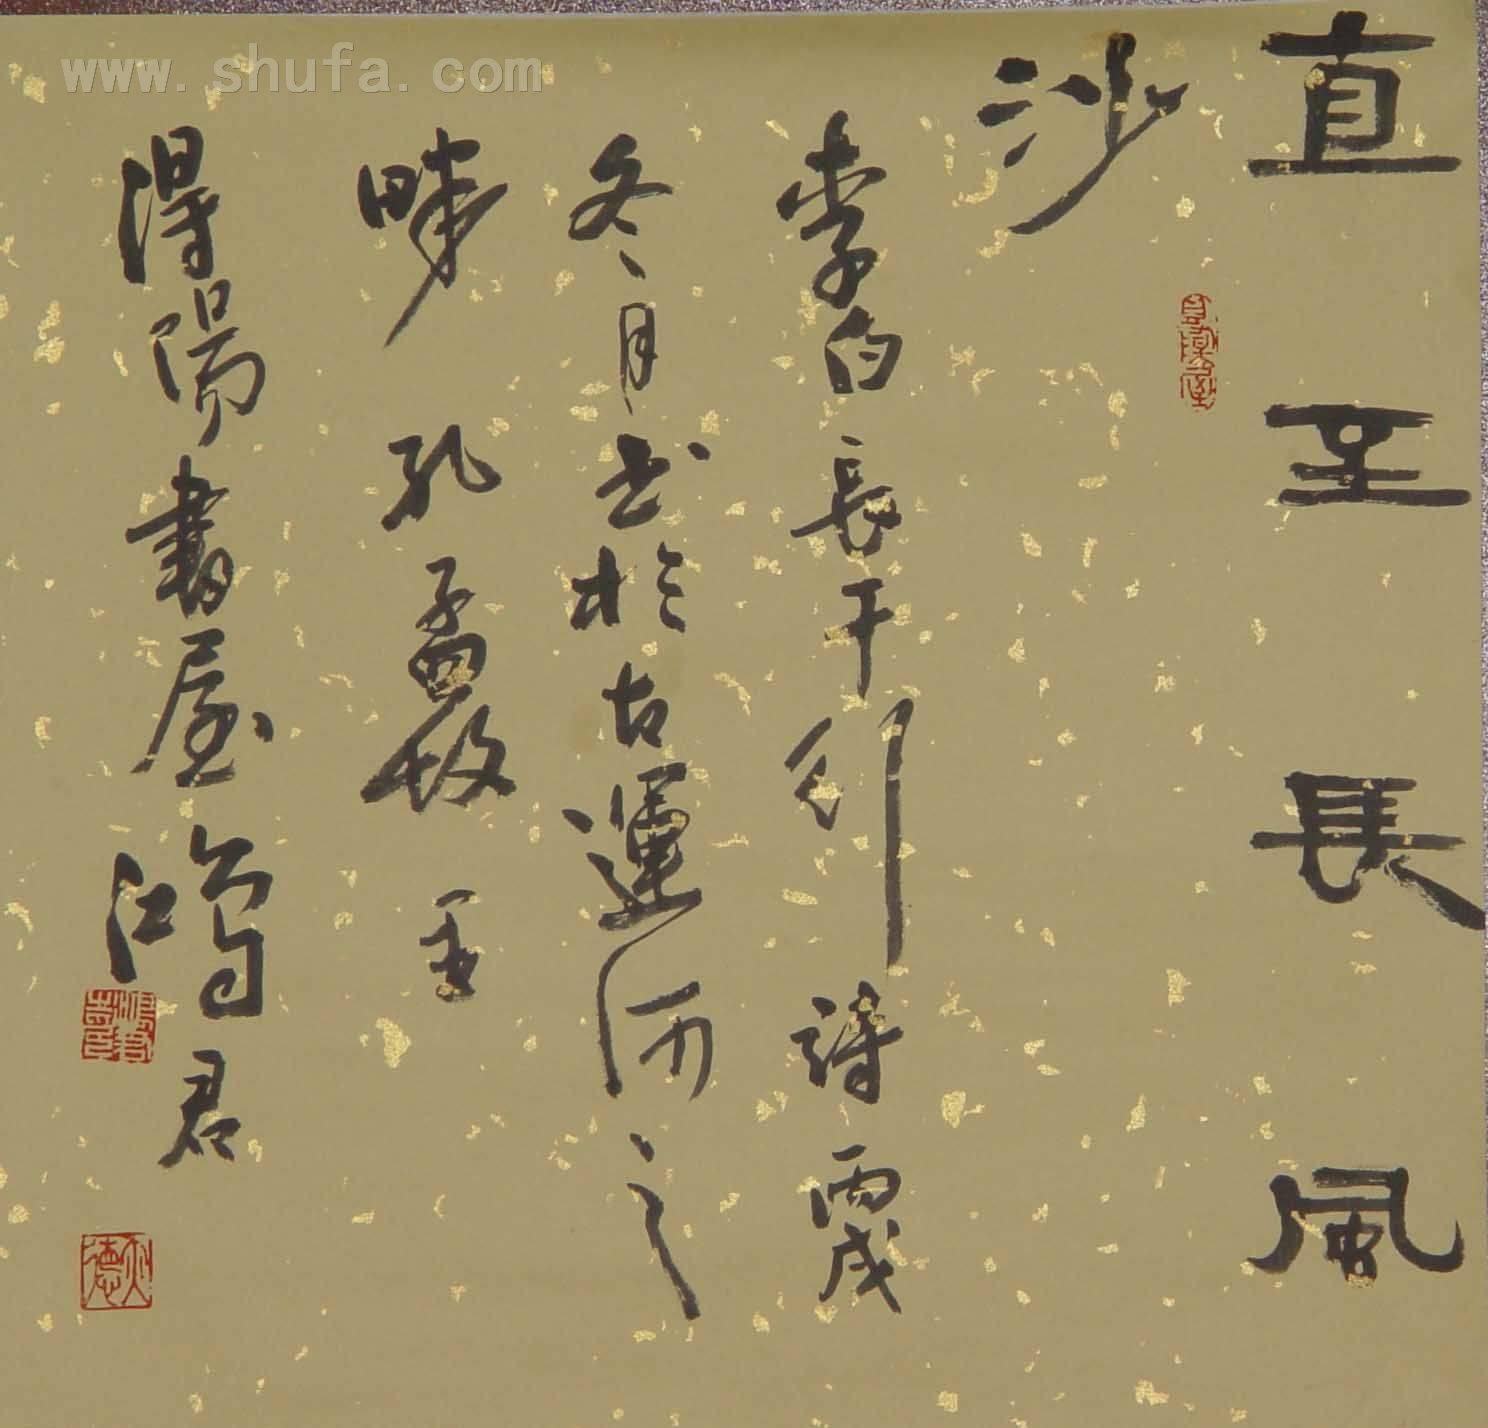 www.shufa.com
直至長風
沙
李白長干引詩丙戌
冬月书於古運河之
畔孔孟故里
得陽書屋鴻君
江